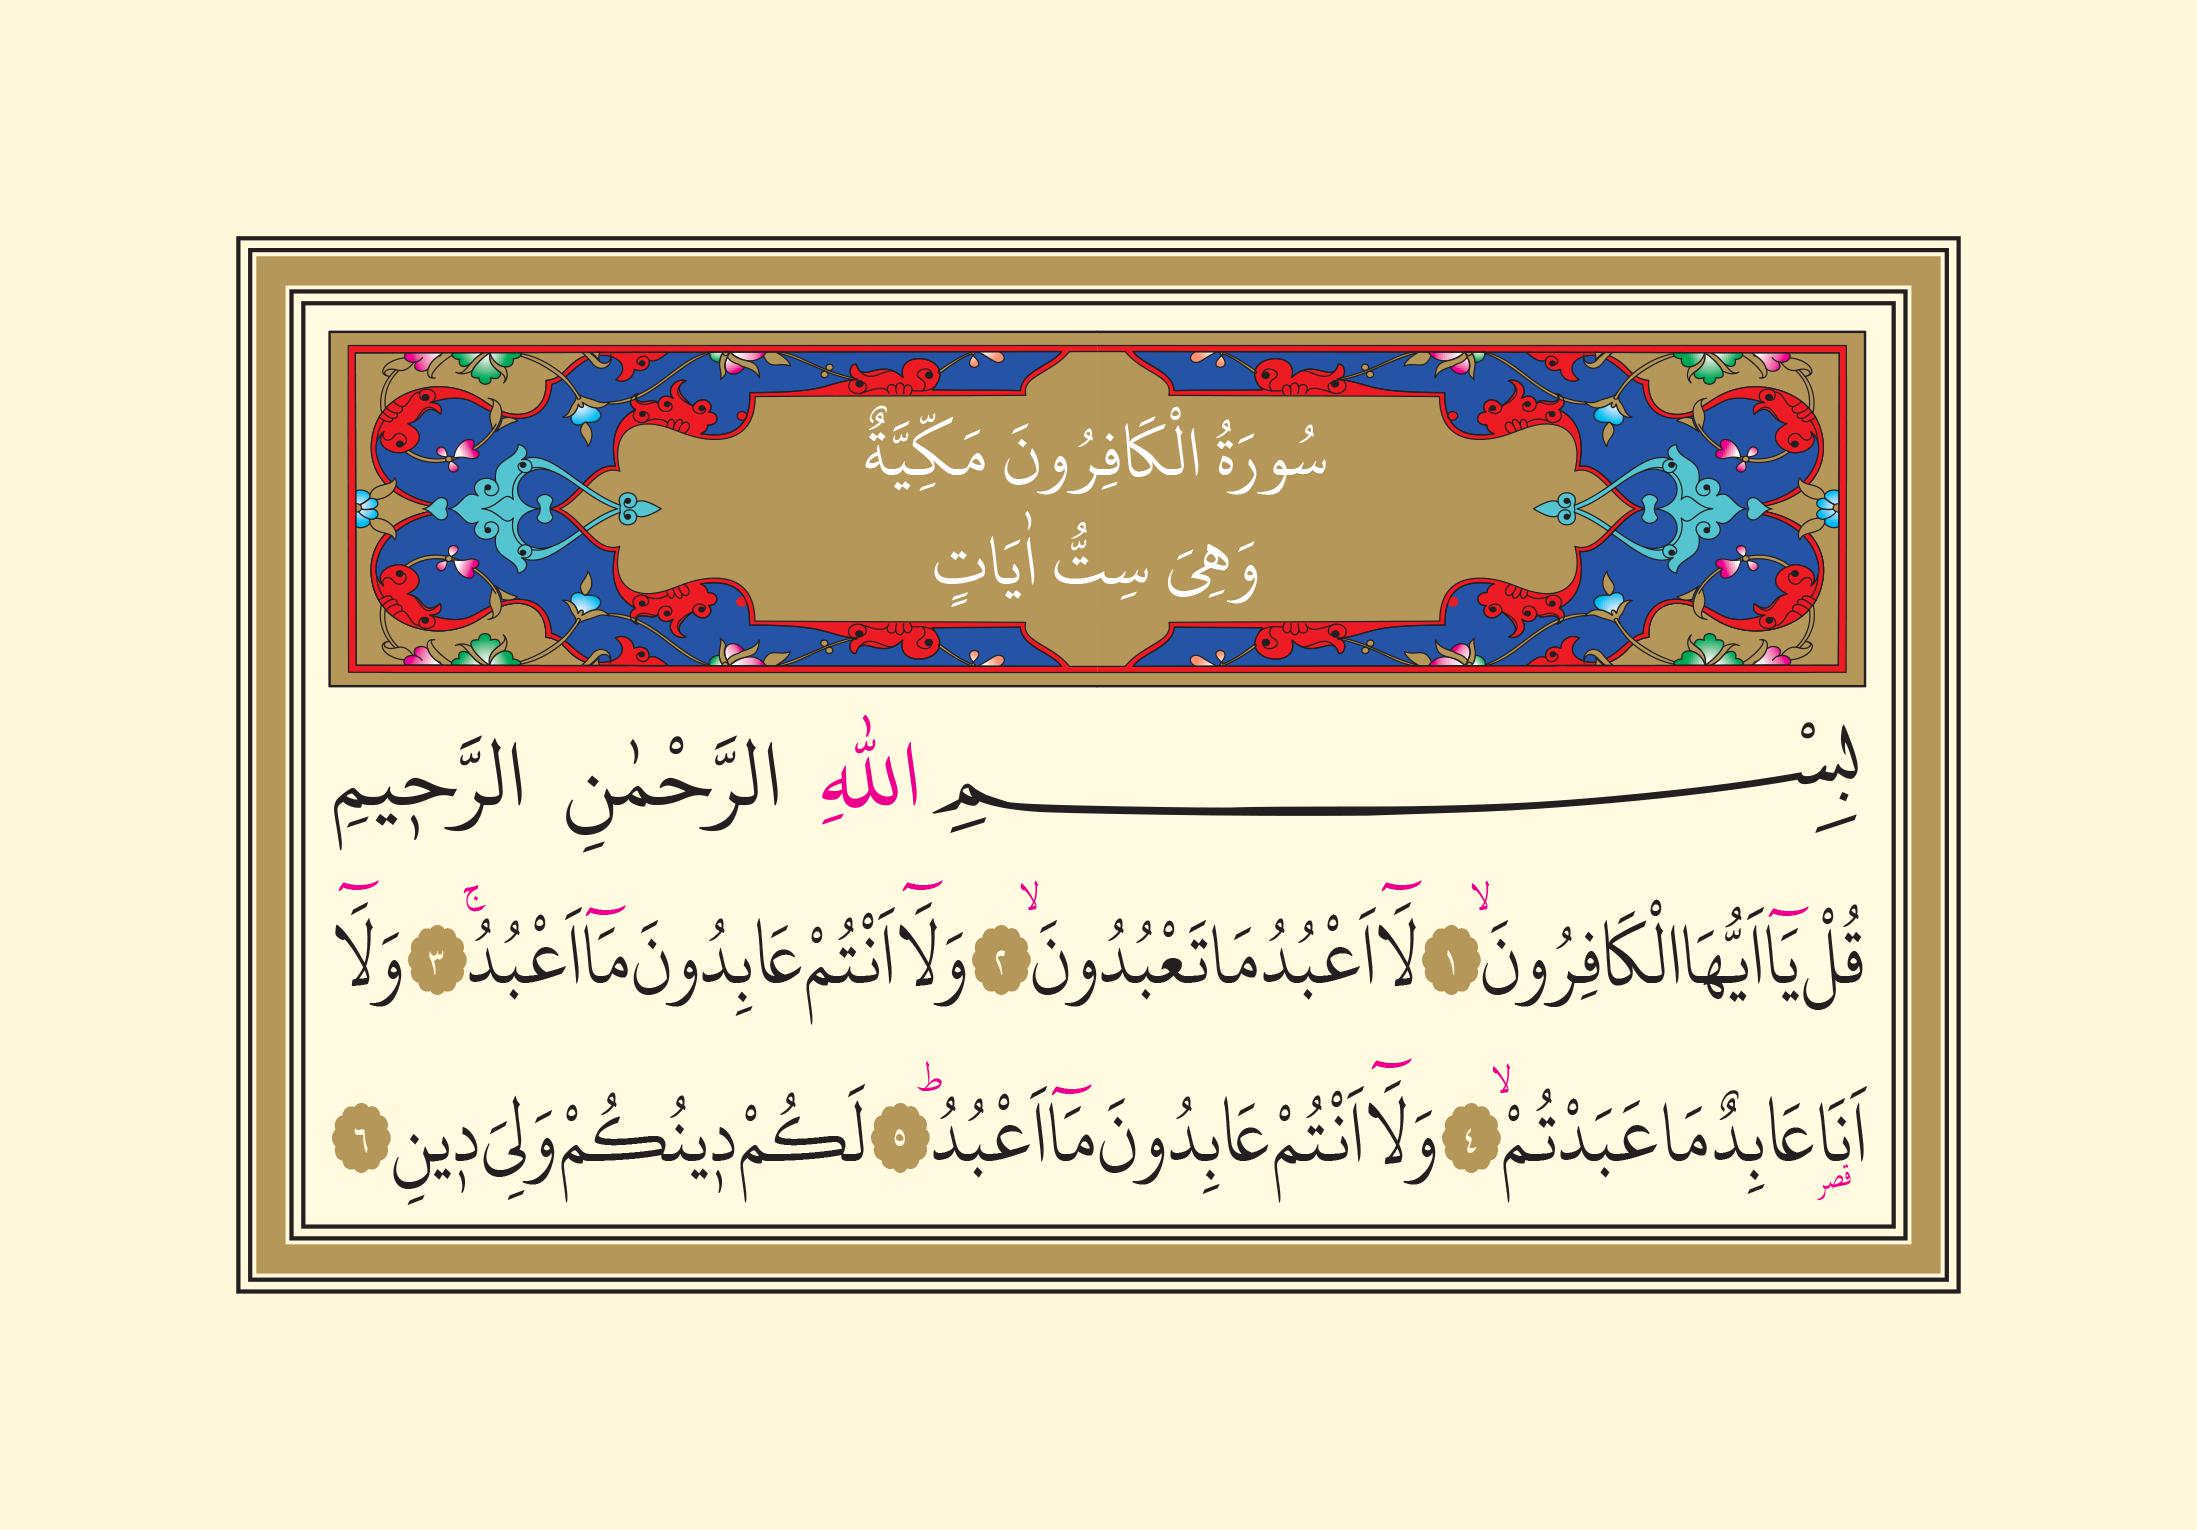 سُورَةُ الْكَافِرُونَ مَكِّيَّةٌ
وَهِىَ سِتُّ اٰيَاتٍ
بِسْمِ اللّٰهِ الرَّحْمٰنِ الرَّحٖيمِ
قُلْ يَٓا اَيُّهَا الْكَافِرُونَۙ ١ لَٓا اَعْبُدُ مَا تَعْبُدُونَۙ ٢ وَلَٓا اَنْتُمْ عَابِدُونَ مَٓا اَعْبُدُۚ ٣ وَلَٓا
اَنَا۬ عَابِدٌ مَا عَبَدْتُمْۙ ٤ وَلَٓا اَنْتُمْ عَابِدُونَ مَٓا اَعْبُدُؕ ٥ لَكُمْ دٖينُكُمْ وَلِىَ دٖينِ ٦
قصر